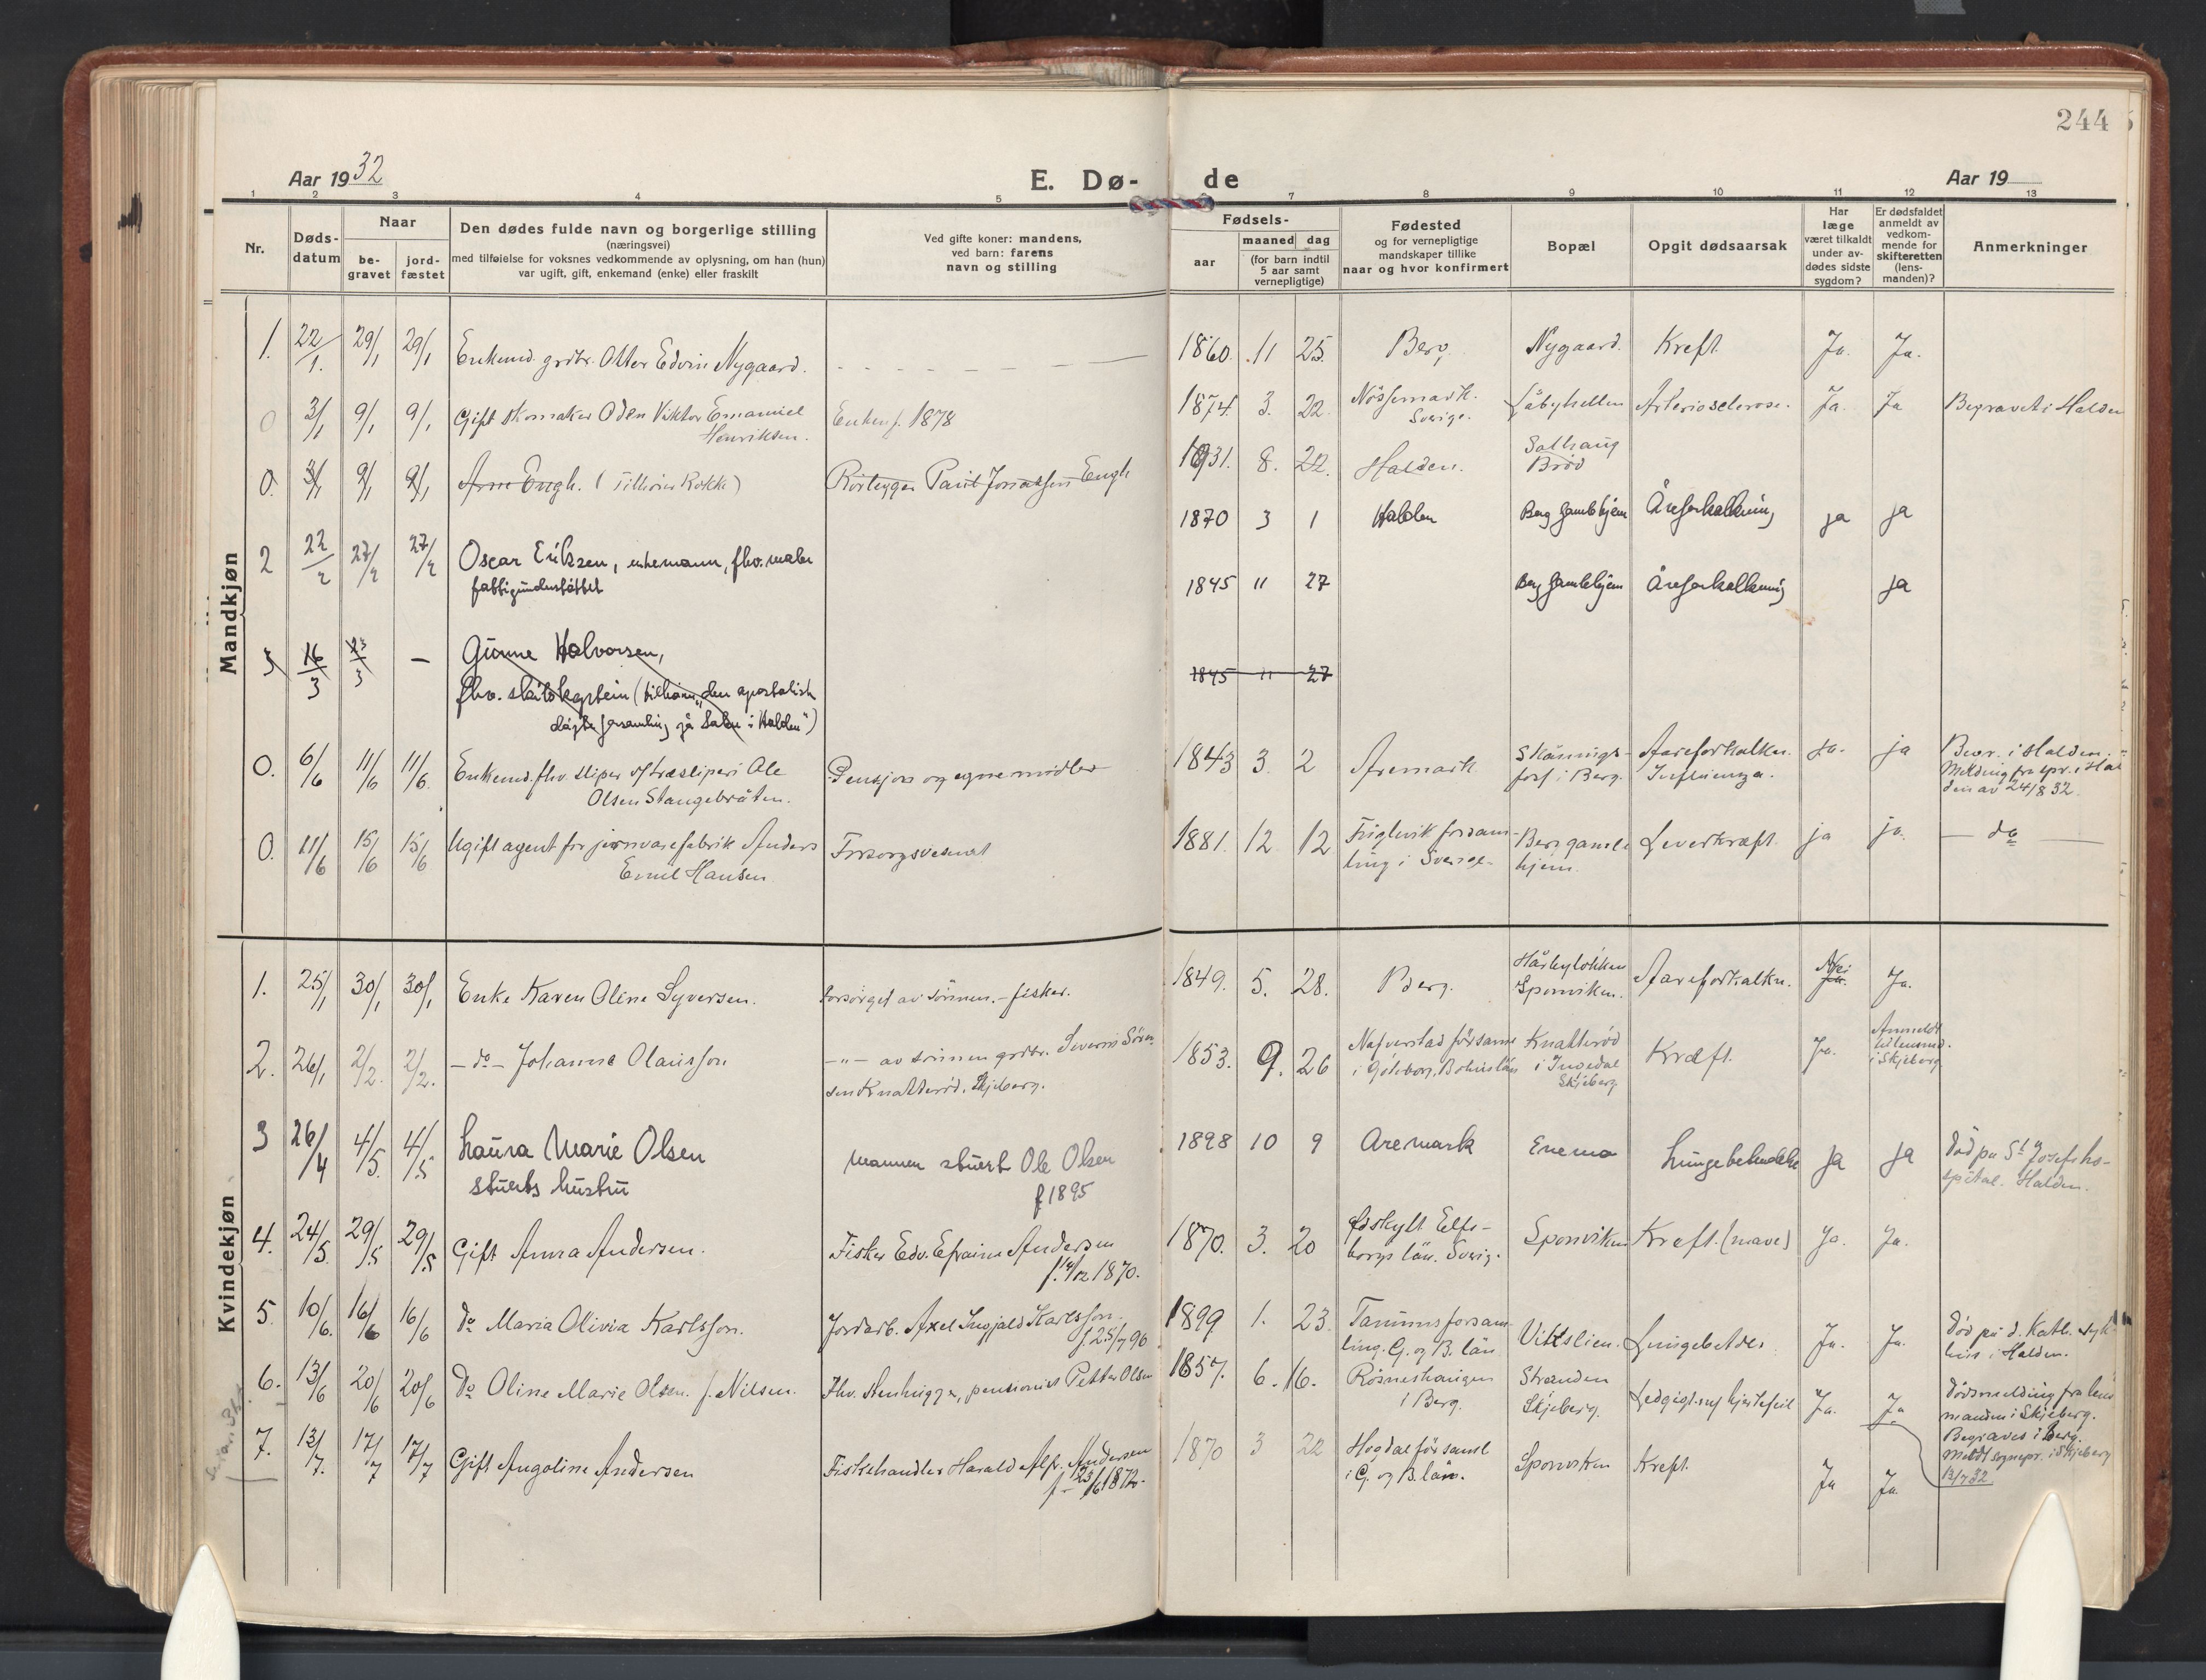 244
Aar 1932
E. Dø-
de
Aar 19
1 2 3 4 5 7 8 9 10 11 12 13
Nr.
Døds-
datum
Naar
be-
gravet
jord-
fæstet
Den dødes fulde navn og borgerlige stilling
(næringsvei)
med tilføielse for voksnes vedkommende av oplysning, om han (hun)
var ugift, gift, enkemand (enke) eller fraskilt
Ved gifte koner: mandens,
ved barn: farens
navn og stilling
Fødsels-
aar
maaned dag
(for barn indtil
5 aar samt
vernepligtige)
Fødested
og for vernepligtige
mandskaper tillike
naar og hvor konfirmert
Bopæl
Opgit dødsaarsak
Har
læge
været tilkaldt
under av-
dødes sidste
sygdom?
Er dødsfaldet
anmeldt av
vedkom-
mende for
skifteretten
(lens-
manden)?
Anmerkninger
Mandkjøn
1. 22/1. 29/1 29/1 Enkemd. grdbr. Otter Edvin Nygaard. 1860. 11 25. Berg Nygaard. Kreft. Ja. Ja.
0 3/1 9/1 9/1 Gift skomaker Oden Viktor Emanuel
Henriksen.
Enken f. 1878
1874. 3. 22. Nössemark.
Sverige.
Låbyhellen Arteriosclerose. Ja. Ja Begravet i Halden
0. 3/1 9/1 9/1 Arne Engh. (Tilhörer Rokke) Rörlegger Paul Jonassen Engh
1931. 8. 22. Halden.
Solhaug
Bröd
1870 3 1 Halden Berg Gamlehjem Åreforkalkning ja ja
2 22/2 27/2 27/2 Oscar Eriksen, enkemann, fhv. maler
fattigunderstøttet
1845 11 27 Berg Gamlehjem Åreforkalkning ja
3 16/3 23/3 – Gunne Halvorsen,
fhv. skibskaptein (tilhører „den apostolisk
døpte forsamling på Salen i Halden")
1845 11 27
0. 6/6 11/6 11/6. Enkemd. fhv. sliper v/træsliperi Ole
Olsen Stangebråten.
Pensjon og egne midler
1843 3. 2 Aremark Skånings-
foss i Berg.
Aareforkalkn.
Influenza.
Ja. ja Begr. i Halden.
Melding fra spr. i Hal
den av 24/8 32.
0. 11/6 15/6 15/6 Ugift agent for jernvarefabrik Anders
Emil Hansen
Forsorgsvesenet
1881. 12. 12 forsam-
ling i Sverige.
Berg gamle
hjem.
Leverkræft. ja ja. — do —
Kvindekjøn
1. 25/1 30/1 30/1 Enke Karen Oline Syversen. Forsörget av sönnen. – fisker.
1849. 5. 28. Berg. Håbylökken
Sponviken.
Aareforkalkn. Nei Ja. Ja.
2. 26/1 2/2. 2/2. – do – Johanne Olausson – " – av sönnen grdbr. Severin Sören
sen Knatteröd. Skjeberg.
1853. 9. 26 Nafverstad församl
i Göteborg, Bohuslän
Knatteröd
i Ingedal
Skjeberg
Kræft. Ja. Anmeldt
til lensmd.
i Skjeberg
3 26/4 4/5. 4/5 Laura Marie Olsen
stuerts hustru
mannen stuert Ole Olsen
f 1895
1898 10 9 Aremark Enemo Lungebetendelse ja ja Död på St. Josefs ho-
spital. Halden.
4. 24/5. 29/5 29/5 Gift Anna Andersen. Fisker Edv. Efraim Andersen
f. 14/12 1870.
1870. 3. 20 Ödskylt Elfs-
borgs län. Sverig.
Sponviken Kreft. (mave) Ja. Ja.
5. 10/6. 16/6 16/6 do Maria Olivia Karlsson. Jordarb. Axel Ingjald Karlsson.
f. 25/7 96
1899 1. 23. Tanums forsam
ling. G. og B. län
Vittslien. Lungebet.des Ja. Ja. Död på d. Kath. syk
hus i Halden.
6. 13/6 20/6 20/6 do Oline Marie Olsen. f. Nilsen. Fhv. stenhugger, pensionist Petter Olsen
1857. 6. 16. Rösneshaugen
i Berg.
Stranden
Skjeberg.
Ledgigt. og hjertefeil Ja. Ja Dödsmelding fra lens
manden i Skjeberg.
Begraves i Berg.
Meldt sognepr. i Skjeberg
13/7 32
7. 13/7. 17/7 17/7 Gift Angoline Andersen Fiskehandler Harald Alfr. Andersen
f – 23/6 1872.
1870 3 22 Hogdal församl
i G. og B. län.
Sponviken Kreft. Ja Ja